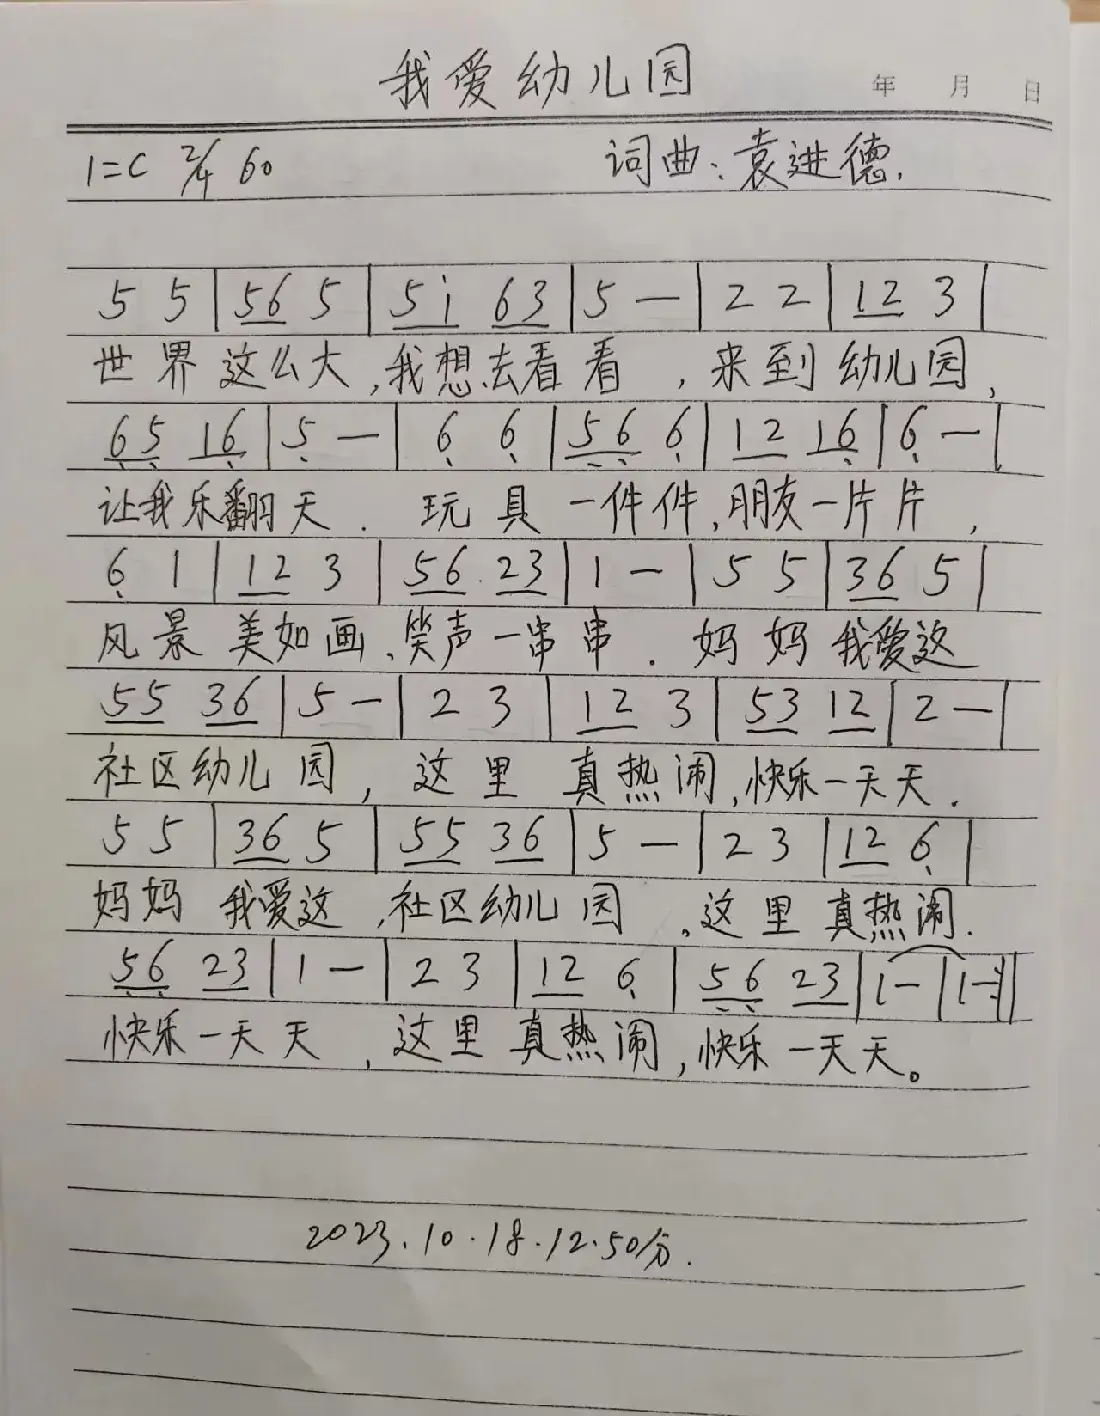 我爱幼儿园
年 月 日
1=C 2/4 60 词曲：袁进德.
5 5 | 56 5 | 5i 63 | 5 — | 2 2 | 12 3 |
世界这么大,我想去看看,来到幼儿园,
65 16 | 5 — | 6 6 | 56 6 | 12 16 | 6 — |
让我乐翻天.玩具一件件,朋友一片片,
6 1 | 12 3 | 56 23 | 1 — | 5 5 | 36 5 |
风景美如画、笑声一串串.妈妈我爱这
55 36 | 5 — | 2 3 | 12 3 | 53 12 | 2 — |
社区幼儿园,这里真热闹,快乐一天天.
5 5 | 36 5 | 55 36 | 5 — | 2 3 | 12 6 |
妈妈我爱这,社区幼儿园,这里真热闹.
56 23 | 1 — | 2 3 | 12 6 | 56 23 | 1 — | 1 — :||
快乐一天天,这里真热闹,快乐一天天。
2023.10.18.12.50分.